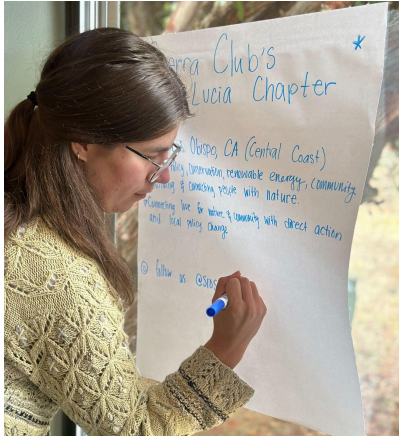 *
Club's
Lucia Chapter
Obispo, CA (Central Coast)
conservation, renewable energy, community
& connecting people with nature.
Connecting love for nature & community with direct action
and local policy change
follow us